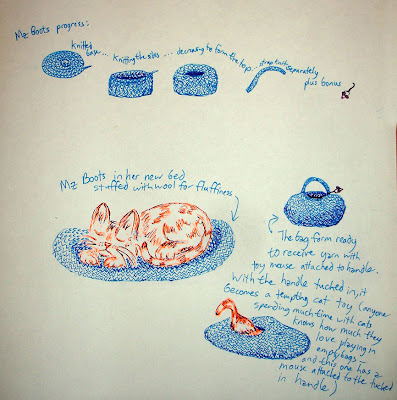 Mz Boots progress:
knitted
base...
knitting the sides...
decreasing to form the top...
strap knit separately
plus bonus
Mz Boots in her new bed
stuffed with wool for fluffiness
The bag form ready
to receive yarn with
toy mouse attached to handle.
With the handle tucked in, it
becomes a tempting cat toy (anyone
spending much time with cats
knows how much they
love playing in
empty bags –
and this one has a
mouse attached to the tucked
in handle)